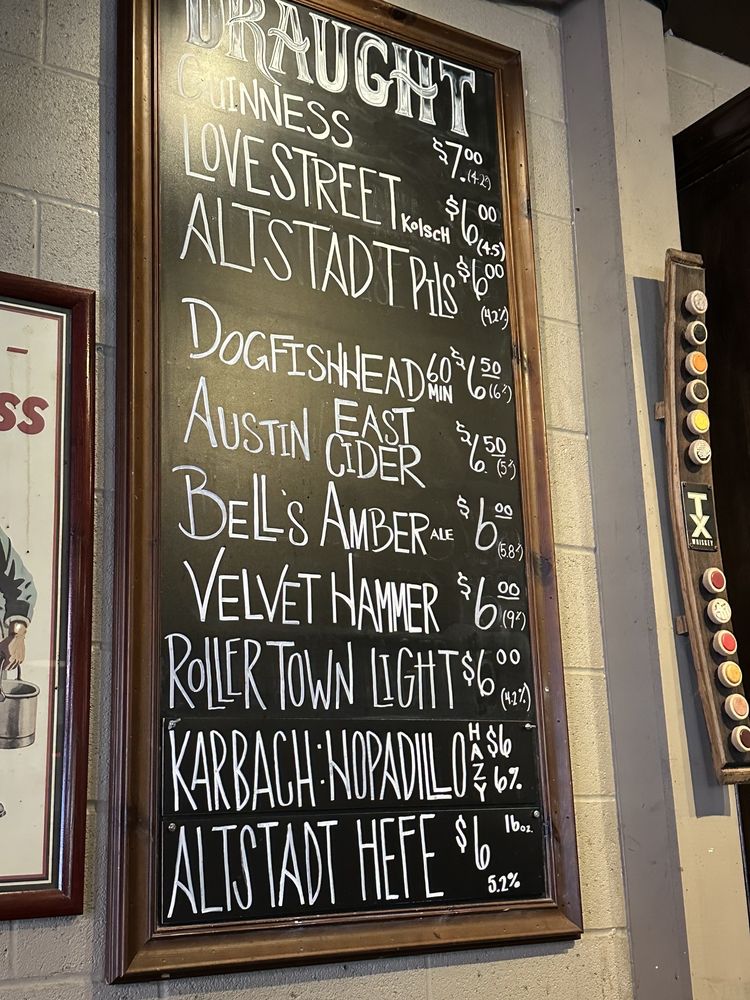 DRAUGHT
GUINNESS $7.00 (4.2%)
LOVESTREET KOLSCH $6.00 (4.5)
ALTSTADT PILS $6.00 (4.2%)
DOGFISHHEAD 60 MIN $6.50 (6%)
AUSTIN EAST CIDER $6.50 (5%)
BELL'S AMBER ALE $6.00 (5.8%)
VELVET HAMMER $6.00 (9%)
ROLLERTOWN LIGHT $6.00 (4.2%)
KARBACH: HOPADILLO HAZY $6 6%
ALTSTADT HEFE $6 16oz. 5.2%
SS
TX
WHISKEY